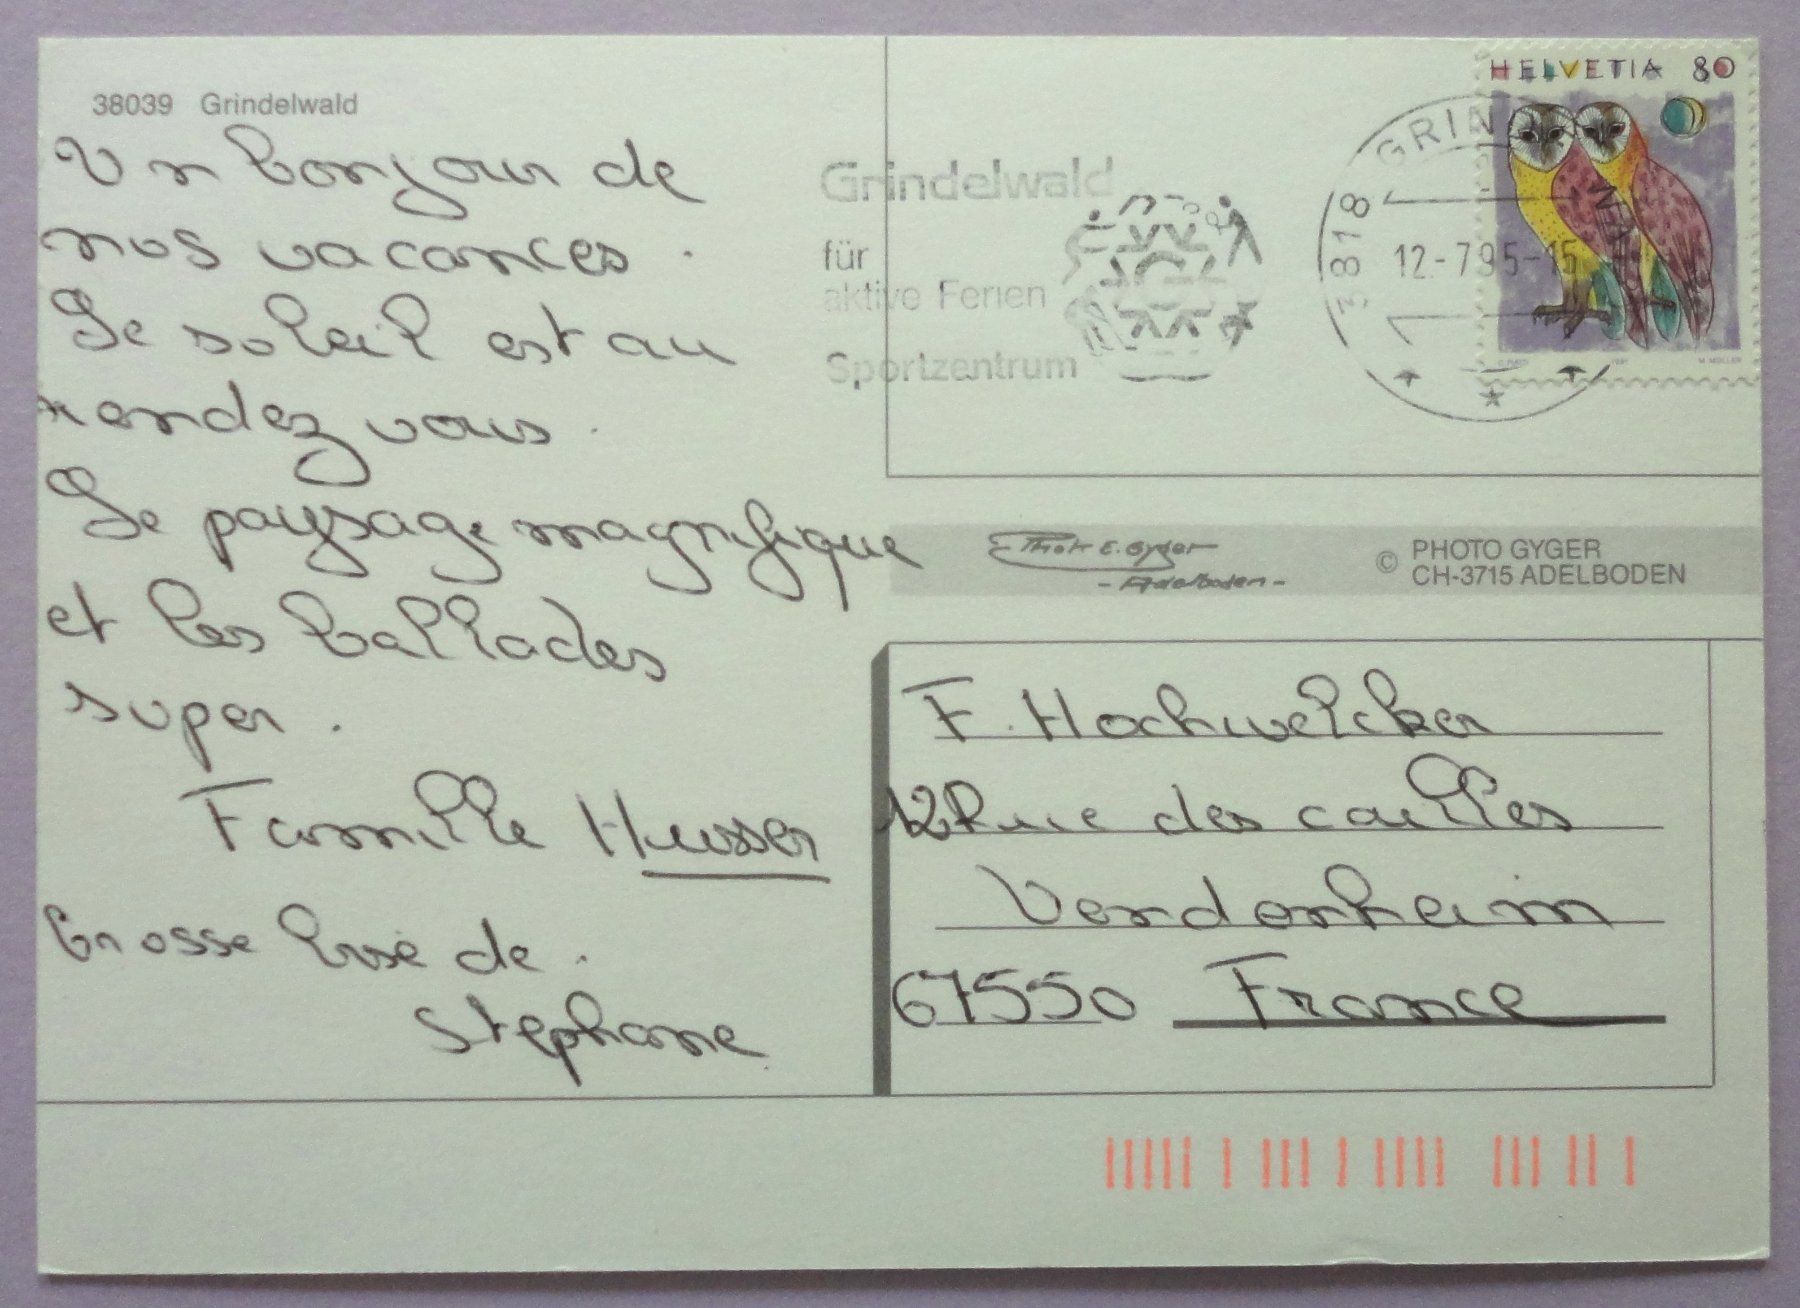 38039 Grindelwald
Un bonjour de
nos vacances.
Le soleil est au
rendez vous.
Le paysage magnifique
et les ballades
super.
Famille Husser
Grosse bise de.
Stephane
Grindelwald
für
aktive Ferien
Sportzentrum
3818 GRIN
12.-7.95-15
HELVETIA 80
Photo E. Gyger
- Adelboden -
© PHOTO GYGER
CH-3715 ADELBODEN
F. Hochwelcker
12 Rue des cailles
Vendenheim
67550 France